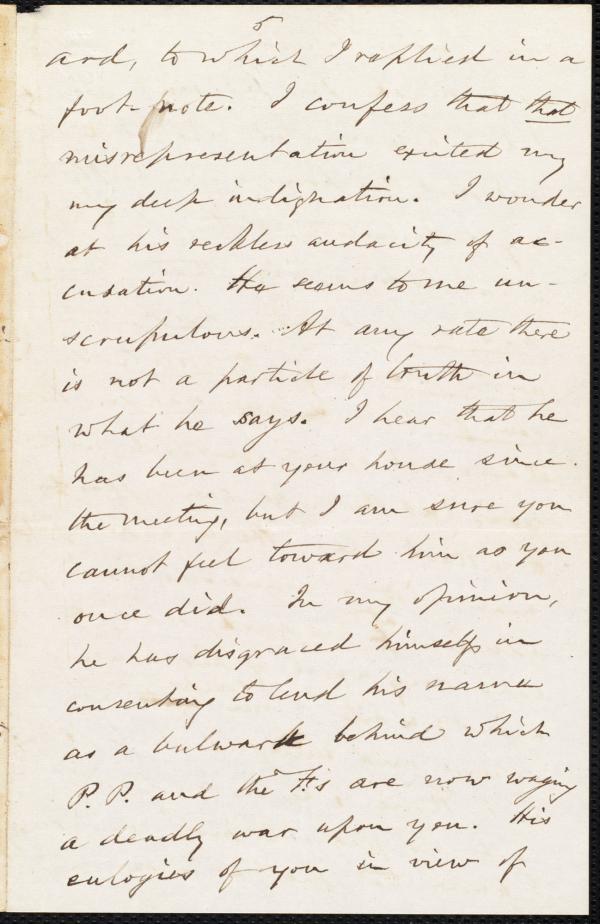 5
ard, to which I replied in a
foot-note. I confess that that
misrepresentation excited my
my deep indignation. I wonder
at his reckless audacity of ac-
cusation. He seems to me un-
scrupulous. At any rate there
is not a particle of truth in
what he says. I hear that he
has been at your house since
the meeting, but I am sure you
cannot feel toward him as you
once did. In my opinion,
he has disgraced himself in
consenting to lend his name
as a bulwark behind which
P. P. and the F's are now waging
a deadly war upon you. His
eulogies of you in view of